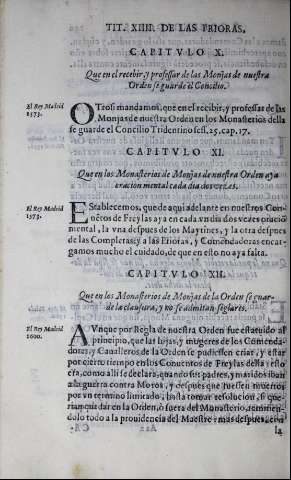 TIT. XIIII. DE LAS PRIORAS.
CAPITVLO X.
Que en el recebir, y professar de las Monjas de nuestra
Orden se guarde el Concilio.
El Rey Madrid
1573.
OTrosi mandamos, que en el recibir, y professar de las
Monjas de nuestra Orden en los Monasterios della
se guarde el Concilio Tridentino sess. 25. cap. 17.
CAPITVLO XI.
Que en los Monasterios de Monjas de nuestra Orden aya
oracion mental cada dia dos vezes.
El Rey Madrid
1573.
EStablecemos, que de aqui adelante en nuestros Con-
uētos de Freylas aya en cada vn dia dos vezes oraciō
mental, la vna despues de los Maytines, y la otra despues
de las Completas: y a las Prioras, y Comendadoras encar-
gamos mucho el cuidado, de que en esto no aya falta.
CAPITVLO XII.
Que en los Monasterios de Monjas de la Orden se guar-
de la clausura, y no se admitan seglares.
El Rey Madrid
1600.
AVnque por Regla de nuestra Orden fue estatuido al
principio, que las hijas, y mugeres de los Comenda-
dores, y Caualleros de la Orden se pudiessen criar, y estar
por cierto tiempo en los Conuentos de Freylas della
como alli se declara, quando sus padres, y maridos iban
a la guerra contra Moros, y despues que fuessen muertos
por vn termino limitado, hasta tomar resolucion, si que-
rian quedar en la Orden, ò fuera del Monasterio, remitien-
dolo todo a la prouidencia del Maestre: mas despues, con
la